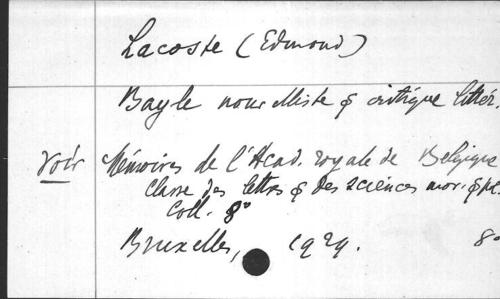 Lacoste (Edmond)
Bayle nouvelliste & critique littér.
voir Mémoires de l'Acad. royale de Belgique
Classe des lettres & des sciences mor. & pol.
Coll. 8°
Bruxelles, 1929. 8°